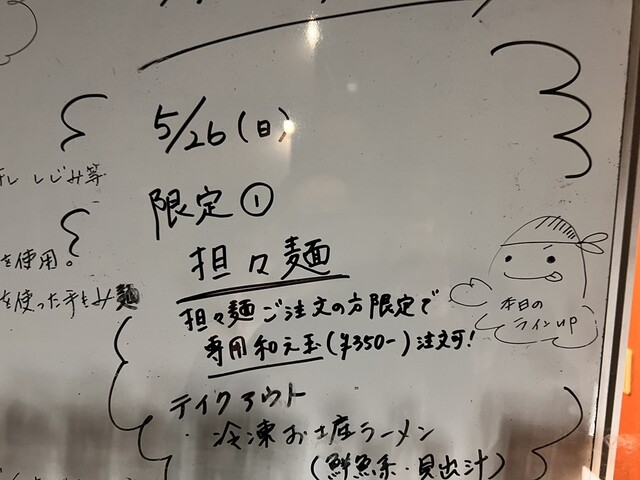 5/26(日)
限定①
担々麺
担々麺ご注文の方限定で
専用和え玉(¥350-)注文可!
テイクアウト
・冷凍お土産ラーメン
(鮮魚系・貝出汁)
本日の
ラインUP
しじみ等
を使用。
を使った手もみ麺